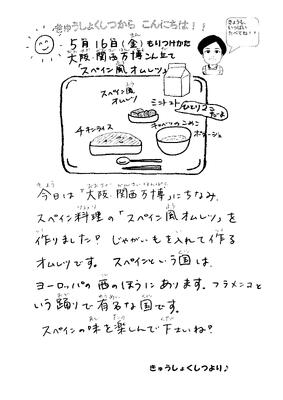 きゅうしょくしつから こんにちは！！
きょうも、いっぱいたべてね！！
5月16日(金)もりつけかた
大阪・関西万博こんだて
「スペイン風オムレツ」
スペイン風オムレツ
ミニトマト
ひとり2こだよ
チキンライス
キャベツのこめこポタージュ
今日は「大阪・関西万博」にちなみ、
スペイン料理の「スペイン風オムレツ」を
作りました♪ じゃがいもを入れて作る
オムレツです。 スペインという国は、
ヨーロッパの西のほうにあります。フラメンコと
いう踊りで有名な国です。
スペインの味を楽しんで下さいね♪
きゅうしょくしつより♪